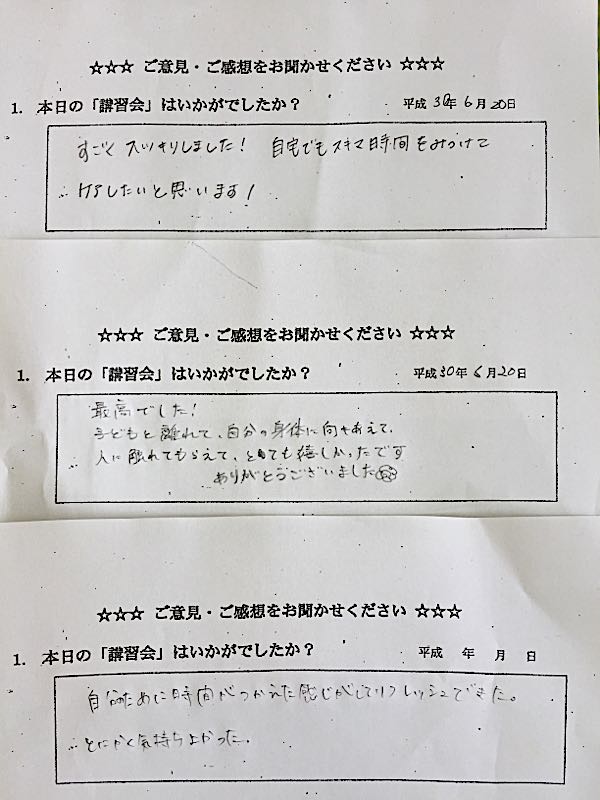 ☆☆☆ ご意見・ご感想をお聞かせください ☆☆☆
1. 本日の「講習会」はいかがでしたか？ 平成 30年 6月 20日
すごく スッキリしました！ 自宅でもスキマ時間をみつけて
ケアしたいと思います！
☆☆☆ ご意見・ご感想をお聞かせください ☆☆☆
1. 本日の「講習会」はいかがでしたか？ 平成30年 6月20日
最高でした！
子どもと離れて、自分の身体に向きあえて、
人に触れてもらえて、とても嬉しかったです
ありがとうございました
☆☆☆ ご意見・ご感想をお聞かせください ☆☆☆
1. 本日の「講習会」はいかがでしたか？ 平成 年 月 日
自分のために時間がつかえた感じがしてリフレッシュできた。
とにかく気持ちよかった。